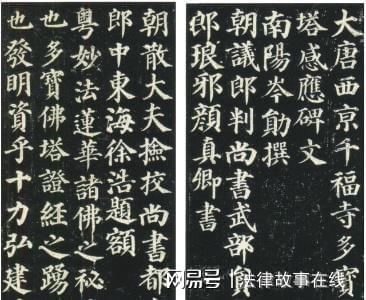 大唐西京千福寺多寶
塔感應碑文
南陽岑勛撰
朝議郎判尚書武部員
郎琅邪顏真卿書
朝散大夫撿挍尚書都
郎中東海徐浩題額
粵妙法蓮華諸佛之秘
也多寶佛塔證經之踴
也發明資乎十力弘建
网易号 | 法律故事在线